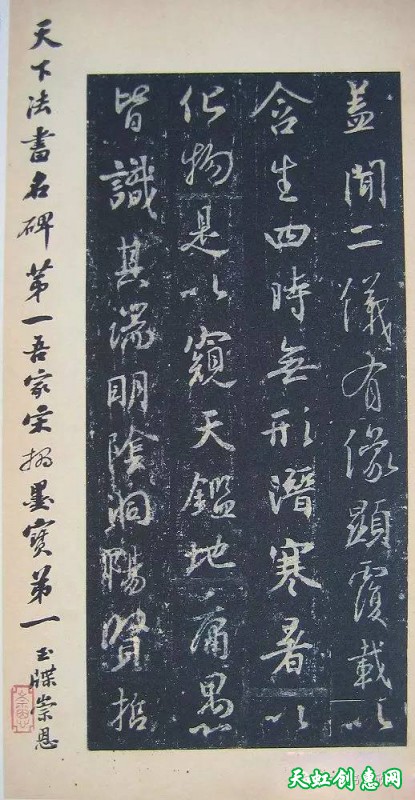 盖闻二仪有像显覆载以
含生四時無形潛寒暑以
化物是以窺天鑑地庸愚
皆識其端明陰洞陽賢哲
天下法書名碑第一吾家宋搨墨寶第一
玉牒崇恩
天虹创惠网